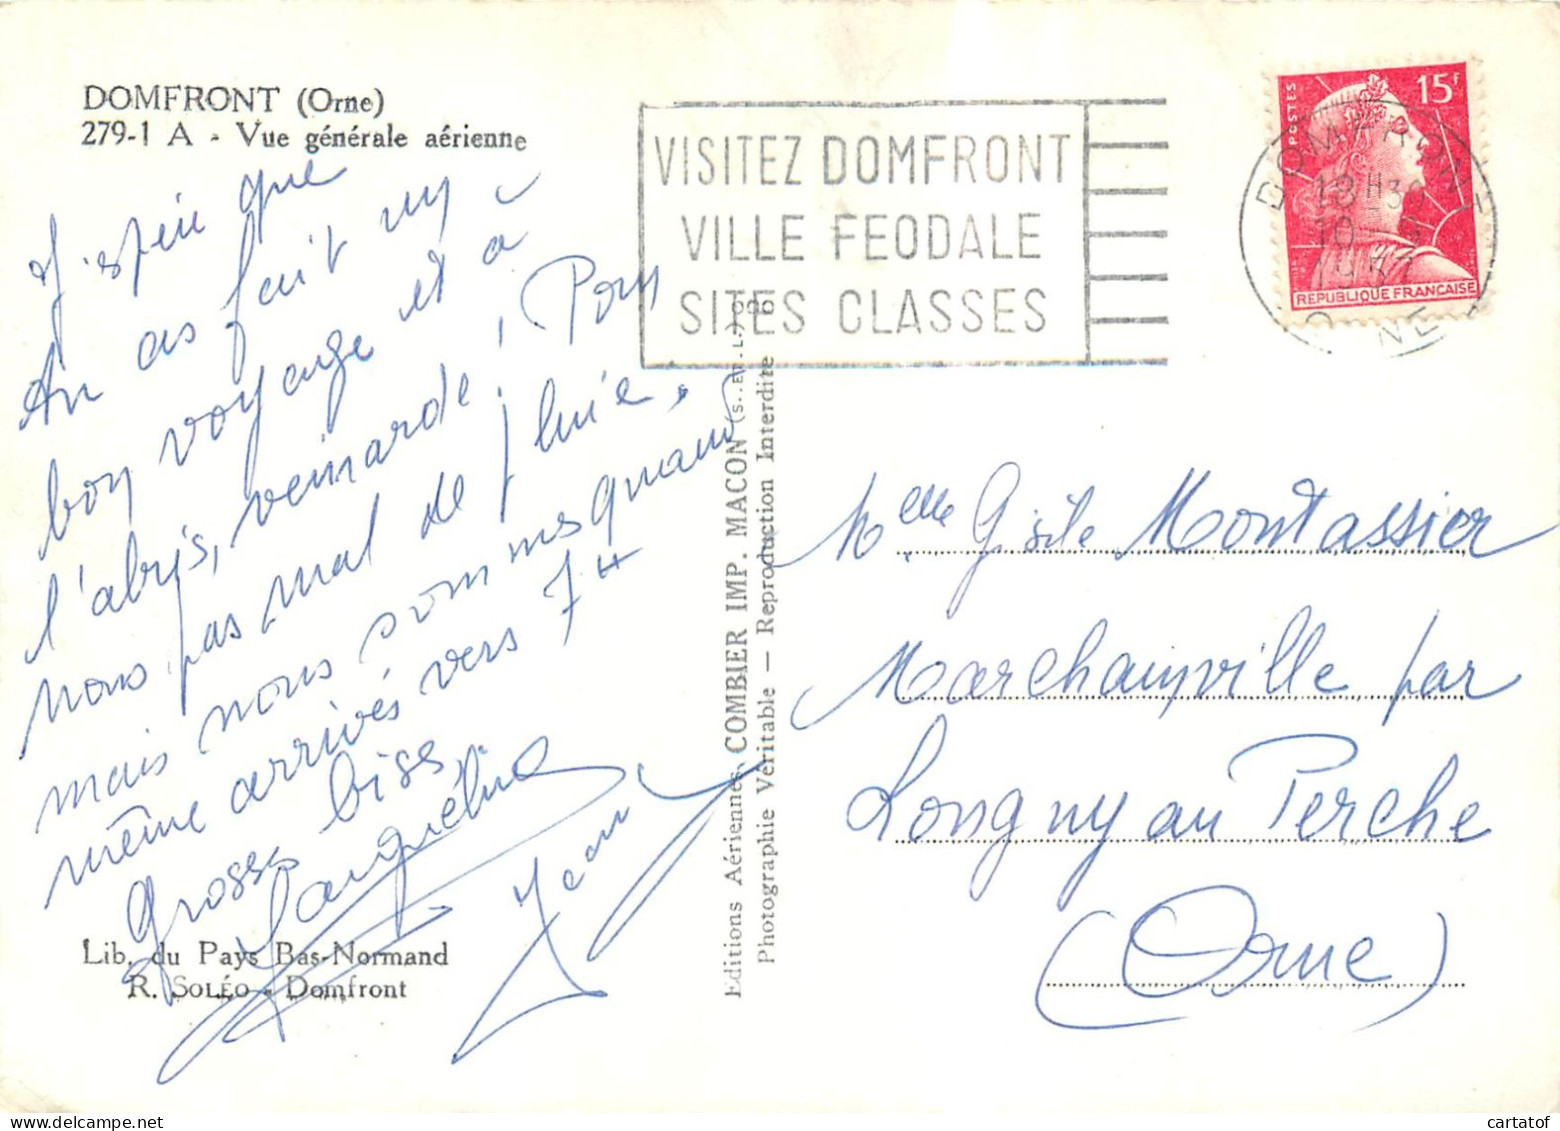 DOMFRONT (Orne)
279-1 A - Vue générale aérienne
J'espère que
tu as fait un
bon voyage et à
l'abris, veinarde! Pour
nous pas mal de pluie,
mais nous sommes quand
même arrivés vers 7 H
Grosses bises
Jacqueline
Jean
Lib. du Pays Bas-Normand
R. SOLÉO - Domfront
Editions Aériennes COMBIER IMP. MACON (S.-ET-L.)
Photographie Véritable — Reproduction Interdite
VISITEZ DOMFRONT
VILLE FEODALE
SITES CLASSES
POSTES
15F
REPUBLIQUE FRANCAISE
DOMFRONT
18H30
10
1957
ORNE
Melle Gisèle Montassier
Marchainville par
Longny au Perche
(Orne)
cartatof